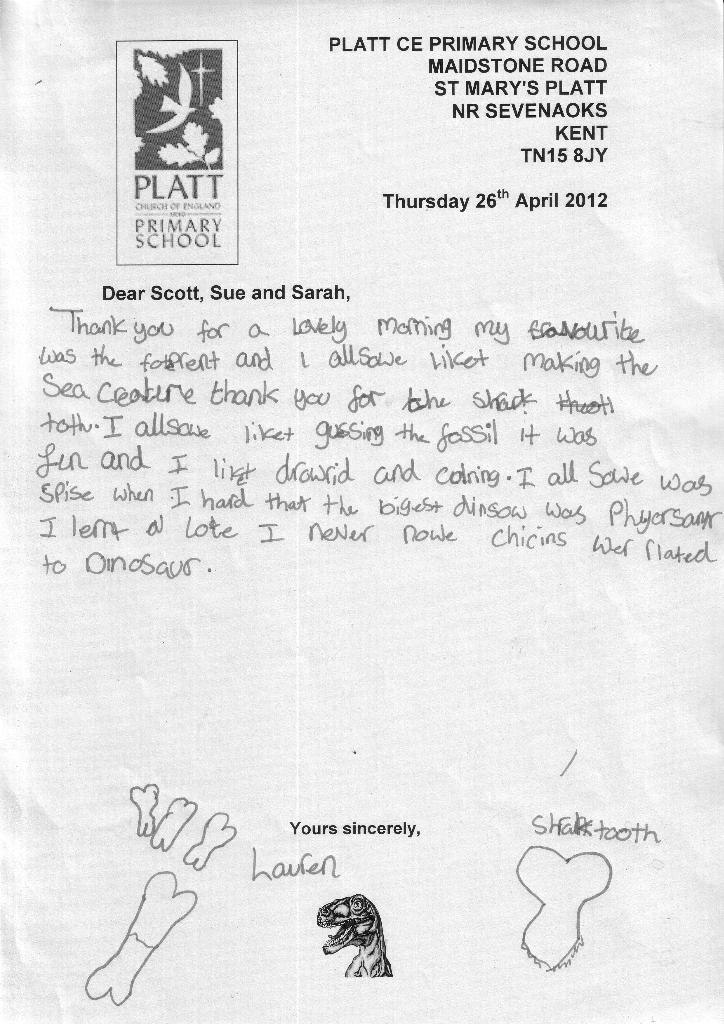 PLATT CE PRIMARY SCHOOL
MAIDSTONE ROAD
ST MARY'S PLATT
NR SEVENAOKS
KENT
TN15 8JY
Thursday 26th April 2012
PLATT
CHURCH OF ENGLAND
PRIMARY
SCHOOL
Dear Scott, Sue and Sarah,
Thank you for a lovely morning my favourite
was the fotprent and I allsowe liket making the
Sea Creature thank you for the shark
toth. I allsowe liket gussing the fossil it was
fun and I liket drowrid and colring. I all Sowe was
Spise when I hard that the bigest dinsow was
I lernt a lote I never nowe chicins wer rlated
to Dinosaur.
Yours sincerely,
Lauren
Shark tooth